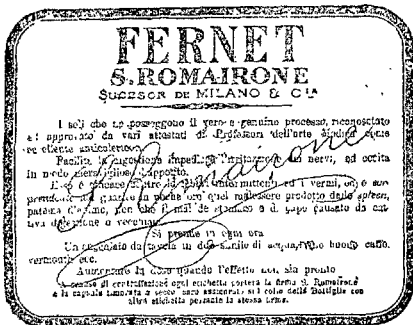 FERNET
S. ROMAIRONE
SUCESOR DE MILANO & Cía
I soli che ne posseggono il vero e genuino processo, riconosciuto
ed approvato da vari attestati di Professori dell'arte
Facilita la digestione impedisce l'irritazione dei nervi, ed eccita
in modo meraviglioso l'appetito.
febbri intermittenti ed i vermi,
in poche ore quel malessere prodotto dallo spleen,
patema d'animo, non che il mal de stomaco e di capo causato da cat
tiva digestione o vecchiaia
Si prende in ogni ora
Un cucchiaio da tavola in due simile di acqua, vino buono caffè
vermouth ecc.
Aumentare la dose quando l'effetto non sia pronto
A scanso di contraffazioni ogni etichetta porterà la firma S. Romairone
e la capsula timbrata a secco sarà assicurata sul collo delle Bottiglie con
altra etichetta portante la stessa firma.
S. Romairone